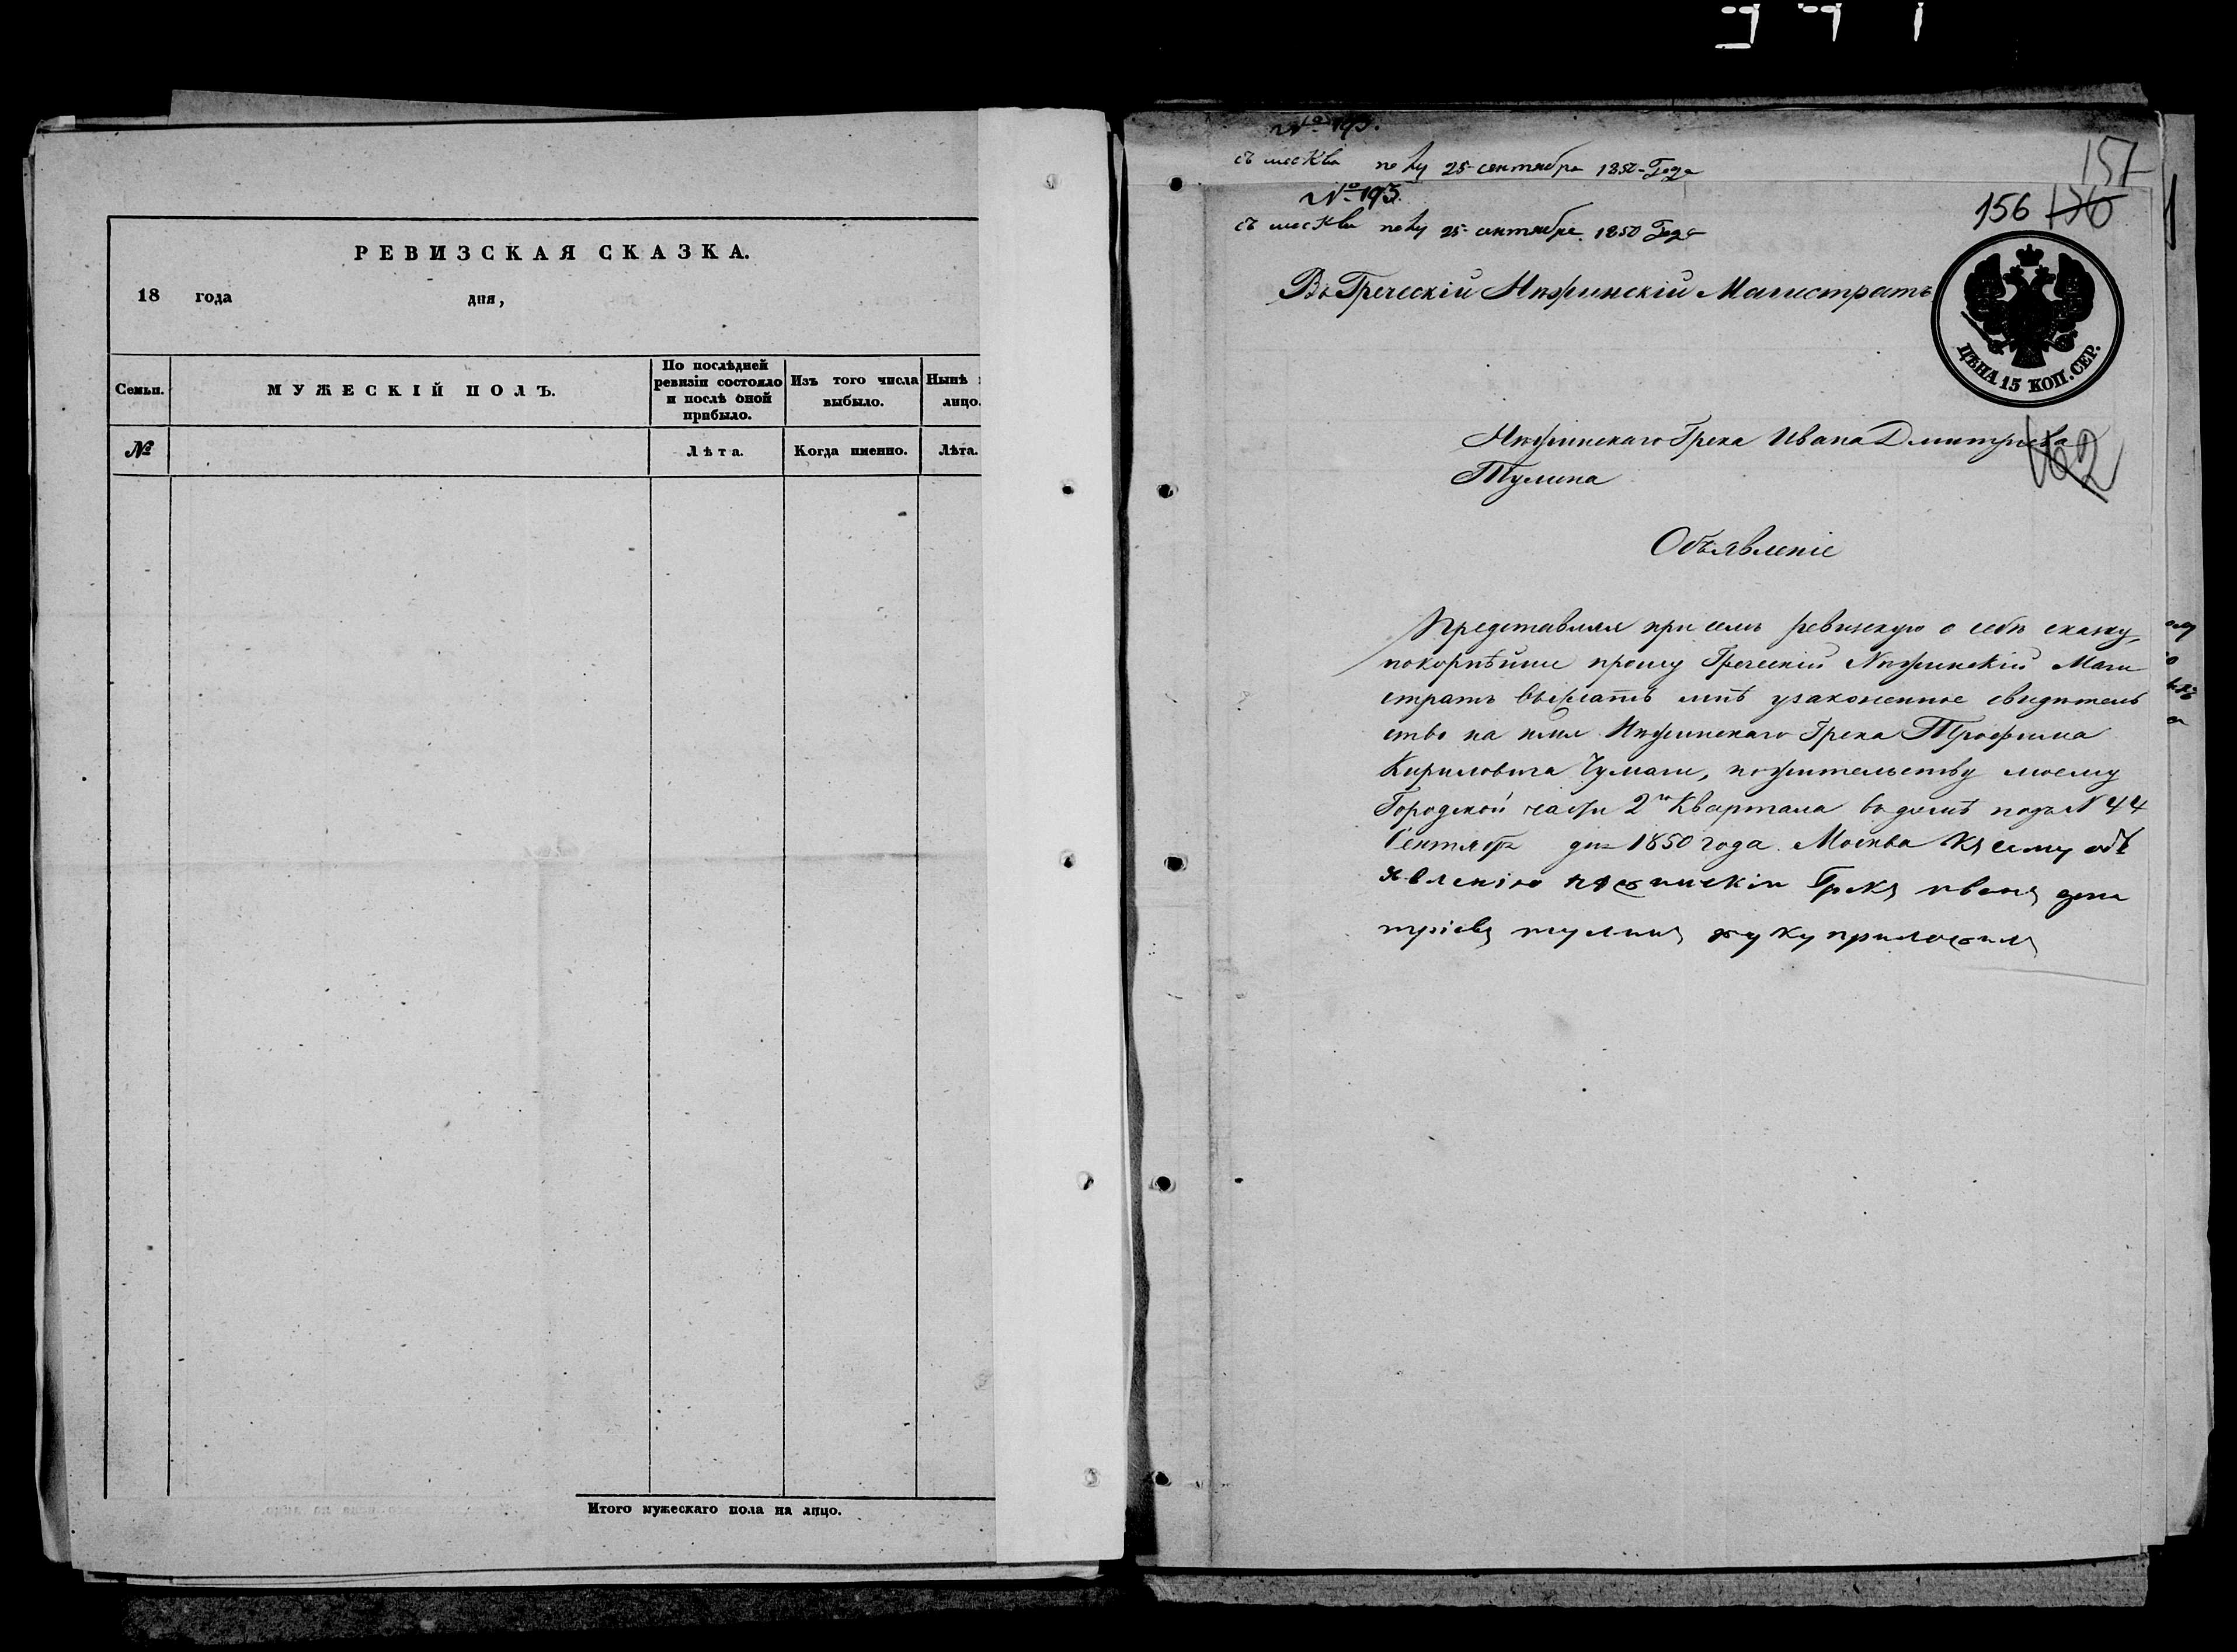 РЕВИЗСКАЯ СКАЗКА.
18 года дня,
Семьи.
МУЖЕСКІЙ ПОЛЪ.
По послѣдней ревизіи состояло и послѣ оной прибыло.
Изъ того числа выбыло.
Нынѣ
лицо.
№
Лѣта.
Когда именно.
Лѣта.
Итого мужескаго пола на лицо.
№ 193.
съ москвы по 25 сентября 1850 Года
№ 193.
съ москвы по 25 сентября 1850 Года
157
156 136
Въ Греческій Нѣжинскій Магистратъ
ЦѢНА 15 КОП. СЕР.
Нѣжинскаго Грека Ивана Дмитріева
Тулина
162
Объявленіе
Представляя при семъ ревизскую о себѣ сказку,
покорнѣйше прошу Греческій Нѣжинскій Маги
стратъ выслать мнѣ узаконенное свидѣтель
ство на имя Нѣжинскаго Грека Трофима
Кириловича Чумаги, по жительству моему
Городской части 2го Квартала въ домѣ подъ N 44
Сентября дня 1850 года. Москва Къ сему объ
явленію нѣжинскіи Грекъ иванъ дми
тріевъ тулинъ руку приложилъ